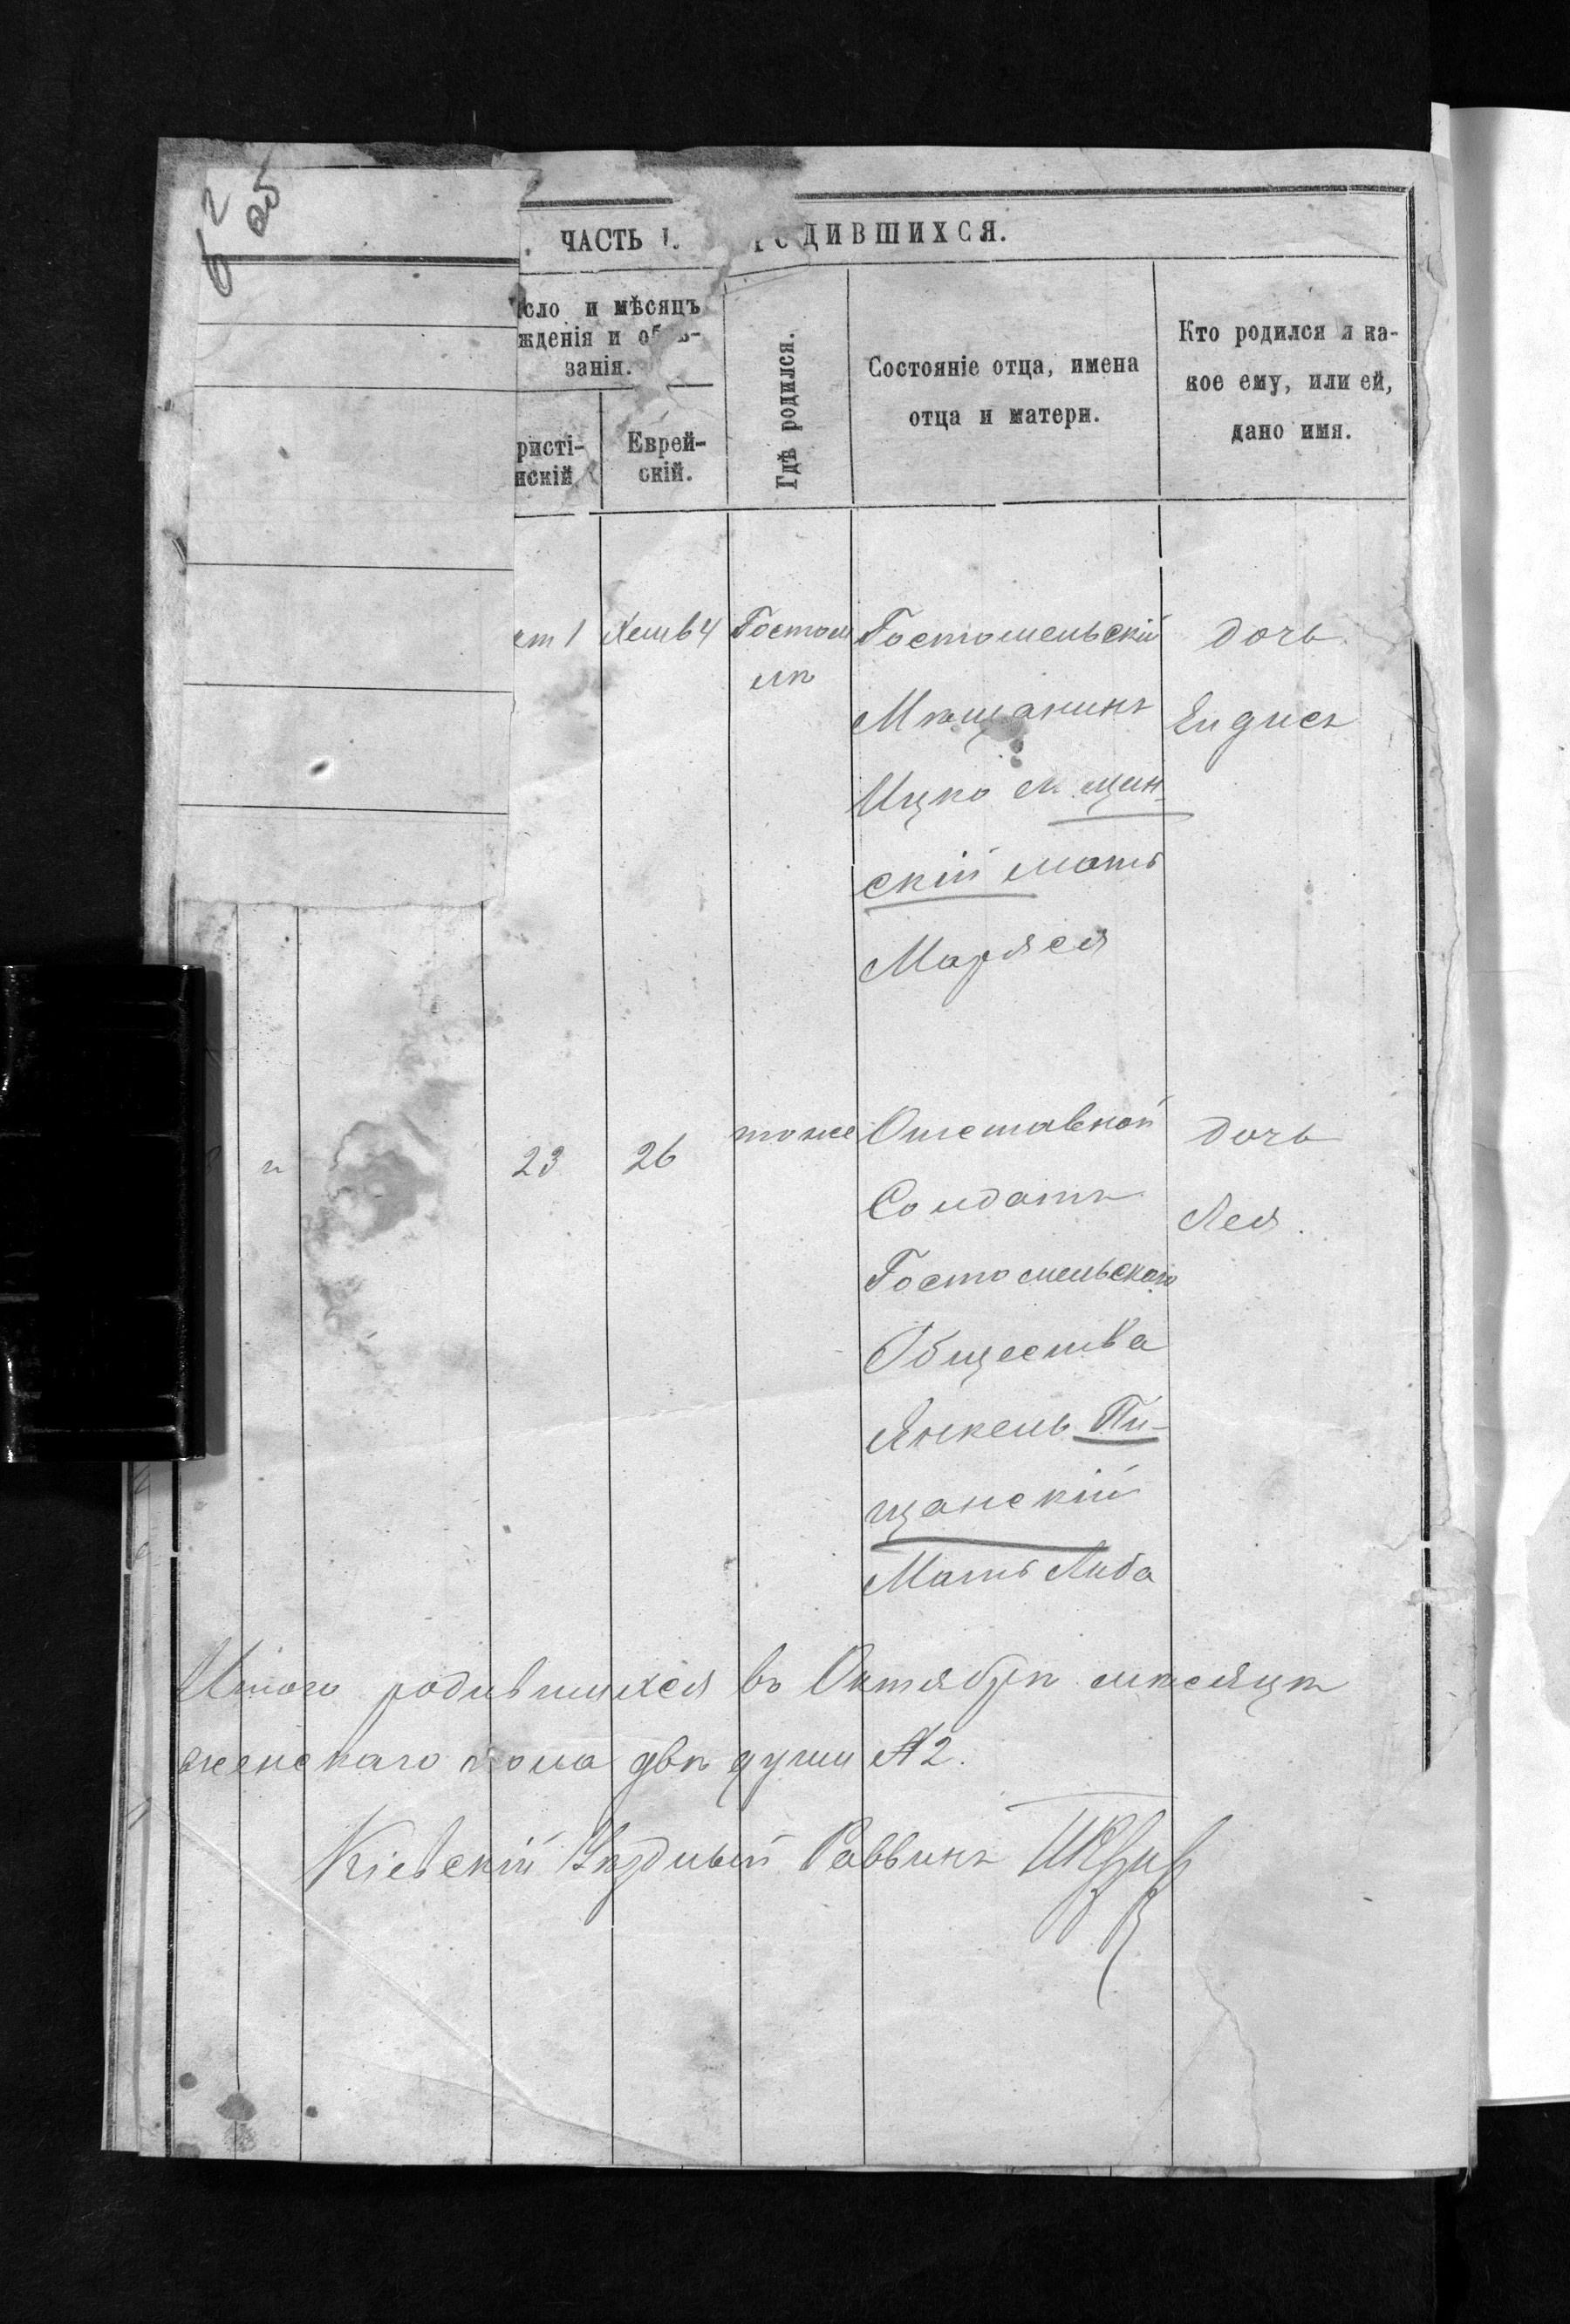 2
6 25
ЧАСТЬ I. РОДИВШИХСЯ.
сло и мѣсяцъ
жденія и обрѣ-
занія.
ристі-
нскій.
Еврей-
скій.
Гдѣ родился.
Состояніе отца, имена
отца и матери.
Кто родился и ка-
кое ему, или ей,
дано имя.
кт 1
Хешв 4
Гостом
лѣ
Гостомельскій
Мѣщанинъ
Ицко
скій мать
Маряся
дочь
Ендисъ
23
26
тоже
Отставной
Солдатъ
Гостомельскаго
Общества
Янкель Пи-
щанскій
Мать Люба
дочь
Лея.
Итого родившихся въ Октябрѣ мѣсяцѣ
женскаго пола двѣ души № 2.
Кіевскій Уѣздный Раввинъ